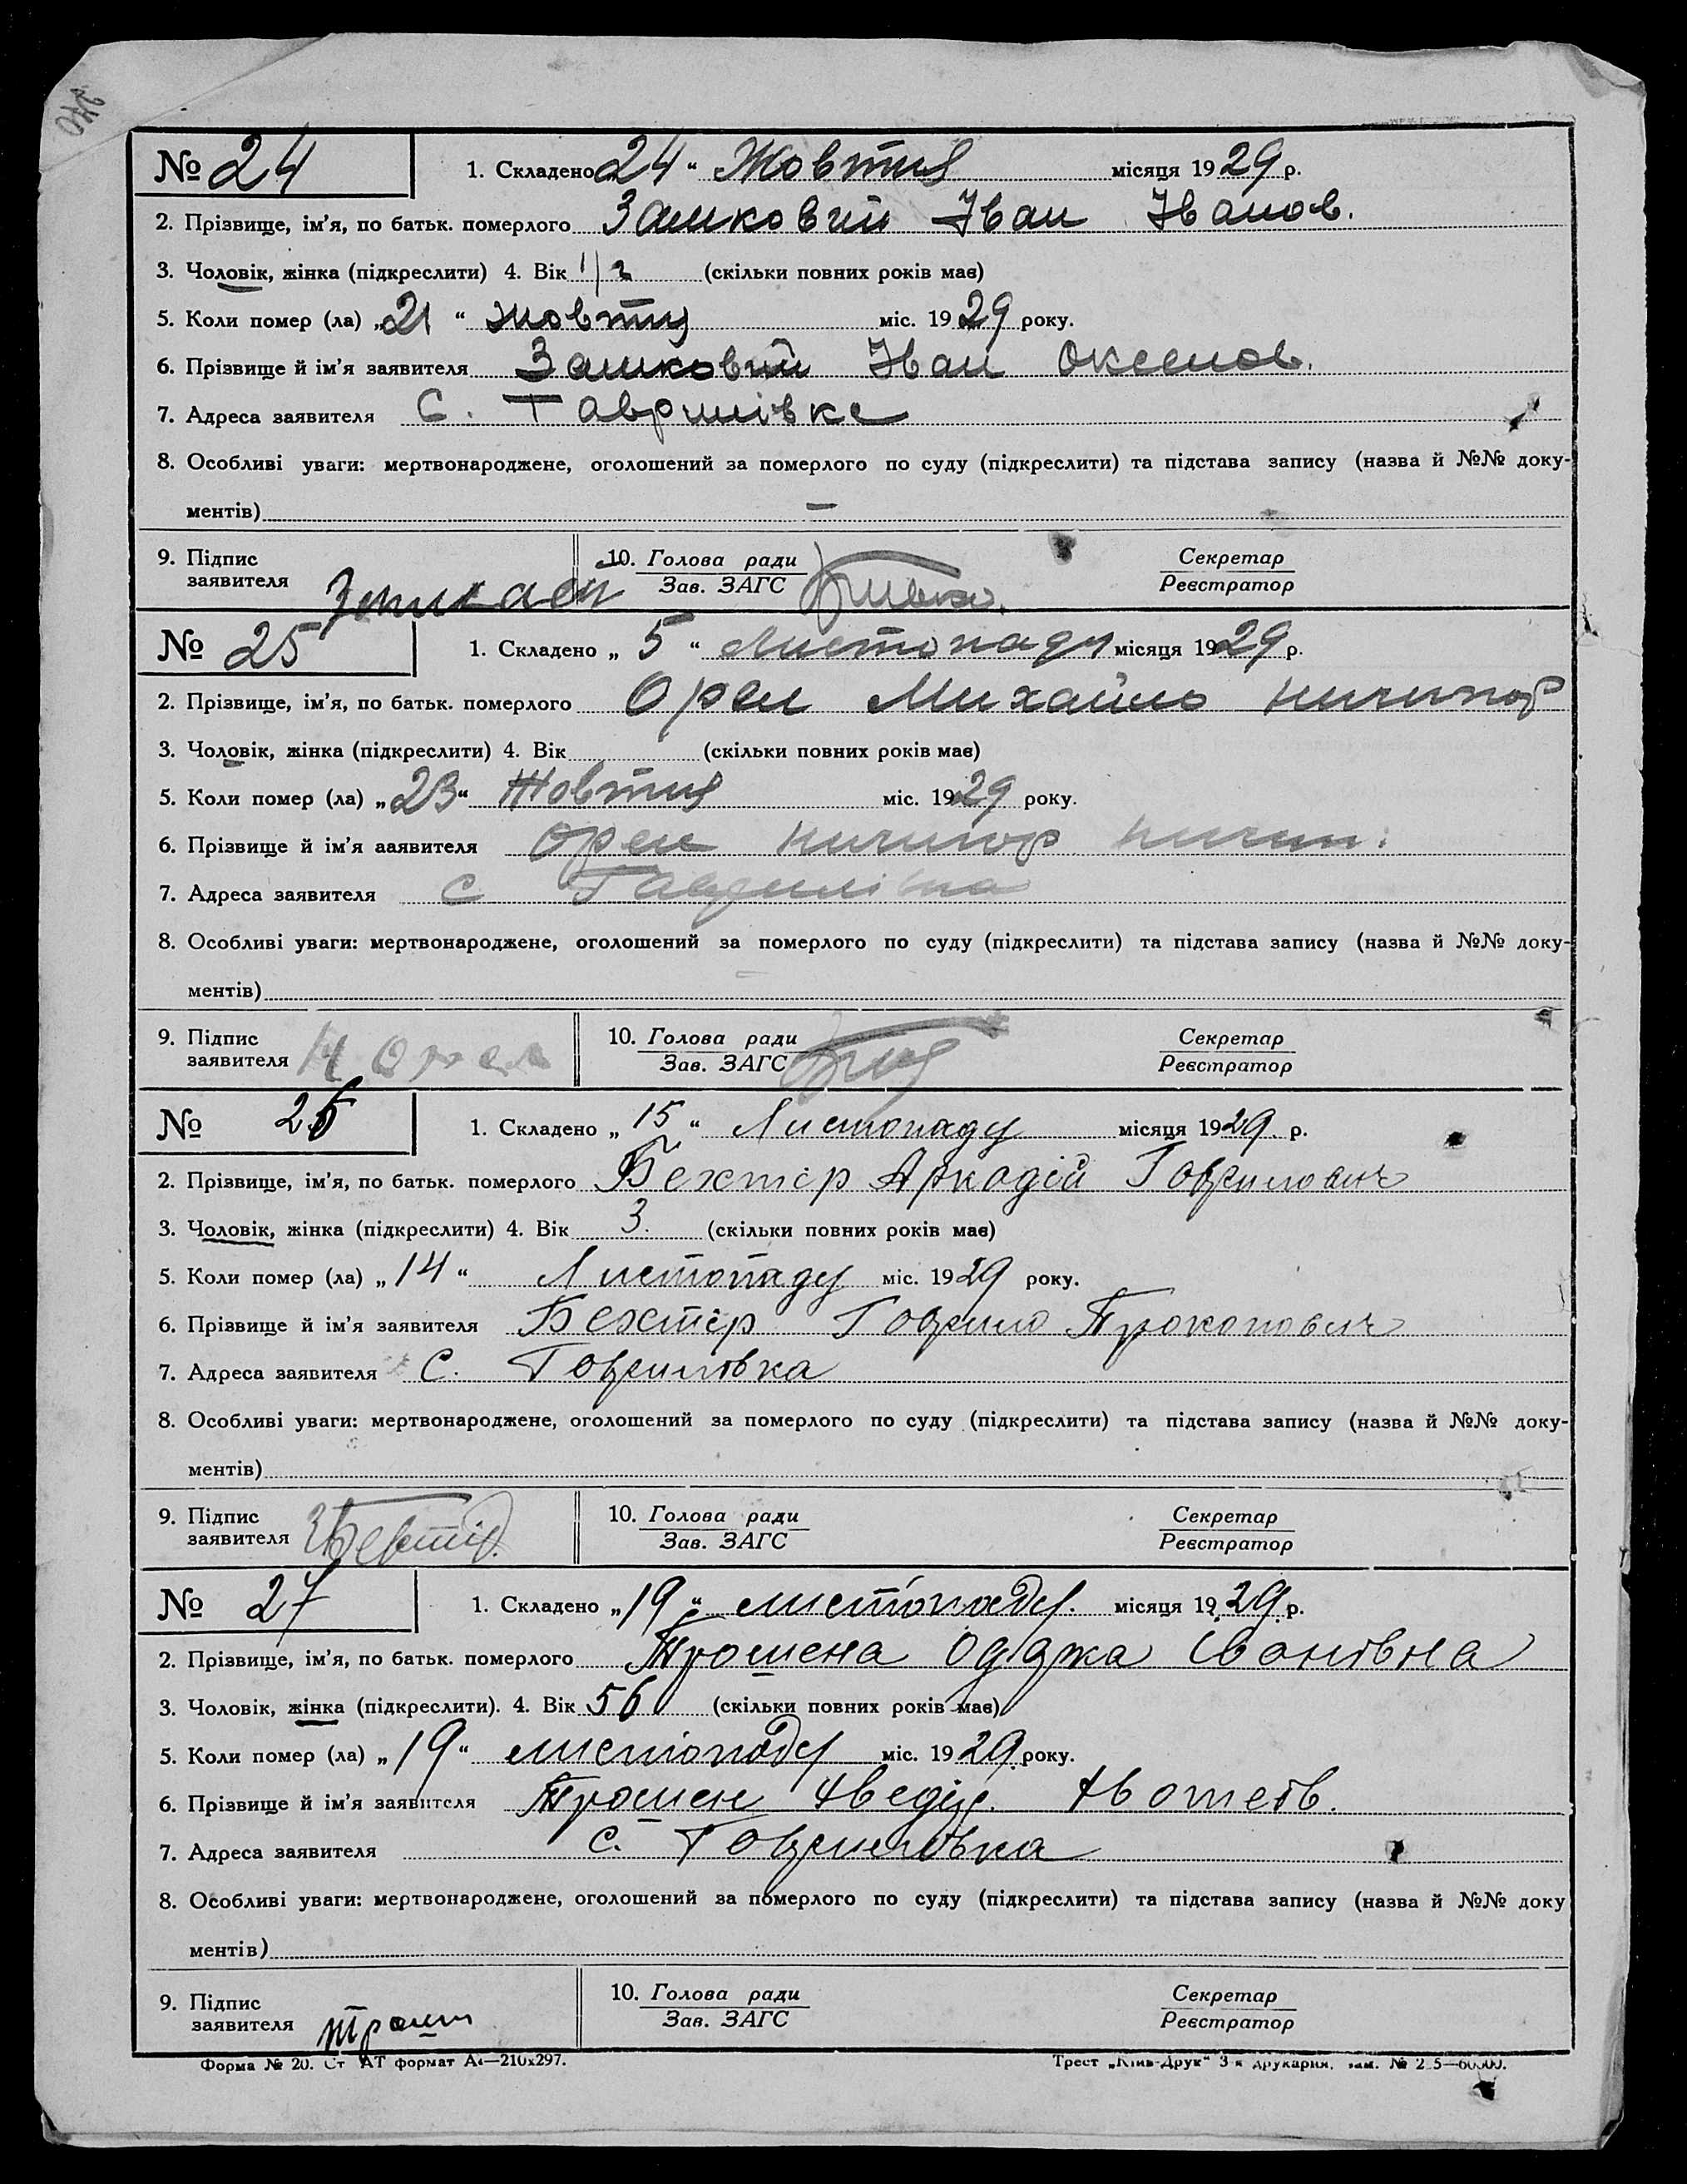 240
№ 24 1. Складено „24“ Жовтня місяця 1929 р.
2. Прізвище, ім'я, по батьк. померлого Замковий Іван Іванов.
3. Чоловік, жінка (підкреслити) 4. Вік 1/2 (скільки повних років має)
5. Коли помер (ла) „21“ жовтня міс. 1929 року.
6. Прізвище й ім'я заявителя Замковий Іван Оксенов.
7. Адреса заявителя С. Гаврилівка
8. Особливі уваги: мертвонароджене, оголошений за померлого по суду (підкреслити) та підстава запису (назва й №№ доку-
ментів) —
9. Підпис заявителя 10. Голова ради Секретар
Зав. ЗАГС Реєстратор
№ 25 1. Складено „5“ Листопаду місяця 1929 р.
2. Прізвище, ім'я, по батьк. померлого Орел Михайло Ничипор
3. Чоловік, жінка (підкреслити) 4. Вік (скільки повних років має)
5. Коли помер (ла) „23“ Жовтня міс. 1929 року.
6. Прізвище й ім'я ааявителя Орел Ничипор Ничип.
7. Адреса заявителя с Гаврилівка
8. Особливі уваги: мертвонароджене, оголошений за померлого по суду (підкреслити) та підстава запису (назва й №№ доку-
ментів)
9. Підпис заявителя Н Орел 10. Голова ради Секретар
Зав. ЗАГС Реєстратор
№ 26 1. Складено „15“ Листопаду місяця 1929. р.
2. Прізвище, ім'я, по батьк. померлого Бехтір Аркадій Гаврилович
3. Чоловік, жінка (підкреслити) 4. Вік 3. (скільки повних років має)
5. Коли помер (ла) „14“ Листопаду міс. 1929 року.
6. Прізвище й ім'я заявителя Бехтір Гаврило Прокопович
7. Адреса заявителя С. Гаврилівка
8. Особливі уваги: мертвонароджене, оголошений за померлого по суду (підкреслити) та підстава запису (назва й №№ доку-
ментів)
9. Підпис заявителя 10. Голова ради Секретар
Зав. ЗАГС Реєстратор
№ 27 1. Складено „19“ листопаду. місяця 1929. р.
2. Прізвище, ім'я, по батьк. померлого Трошена Івонівна
3. Чоловік, жінка (підкреслити). 4. Вік 56 (скільки повних років має)
5. Коли помер (ла) „19“ листопаду міс. 1929. року.
6. Прізвище й ім'я заявителя Трошен
7. Адреса заявителя С. Гаврилівка
8. Особливі уваги: мертвонароджене, оголошений за померлого по суду (підкреслити) та підстава запису (назва й №№ доку
ментів)
9. Підпис заявителя Трошен 10. Голова ради Секретар
Зав. ЗАГС Реєстратор
Форма № 20. Ст АТ формат А4—210х297. Трест „Київ-Друк“ 3-я друкарня,